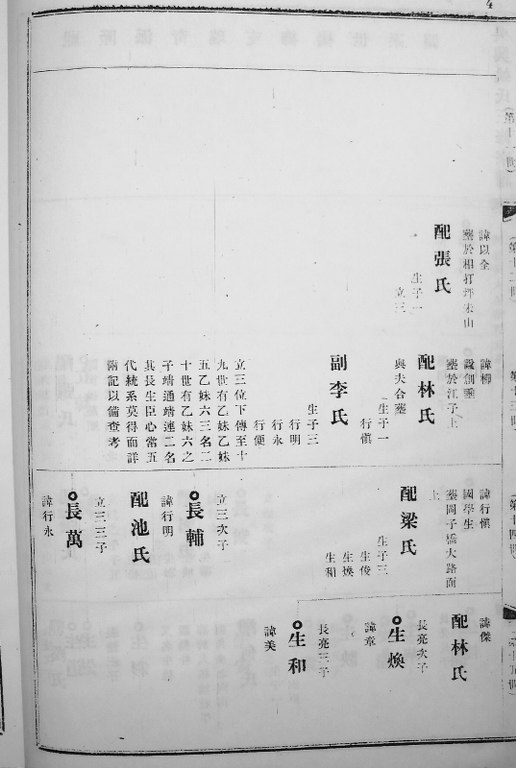 諱以全
配張氏
生子一
立三
諱樽
配林氏
與夫合塟
生子一
行愼
副李氏
生子三
行明
行永
行便
立三位下傳至十
九世有乙妹乙妹
五乙妹六三名二
十世有乙妹六之
子靖通靖連二名
其長生臣心常五
代統系莫得而詳
兩記以備查考
諱行愼
國學生
塟岡子橋大路面
上
配梁氏
生子三
生俊
生煥
生和
立三次子
長輔
諱行明
配池氏
立三三子
長萬
諱行永
諱傑
配林氏
長亮次子
生煥
諱章
長亮三子
生和
諱美